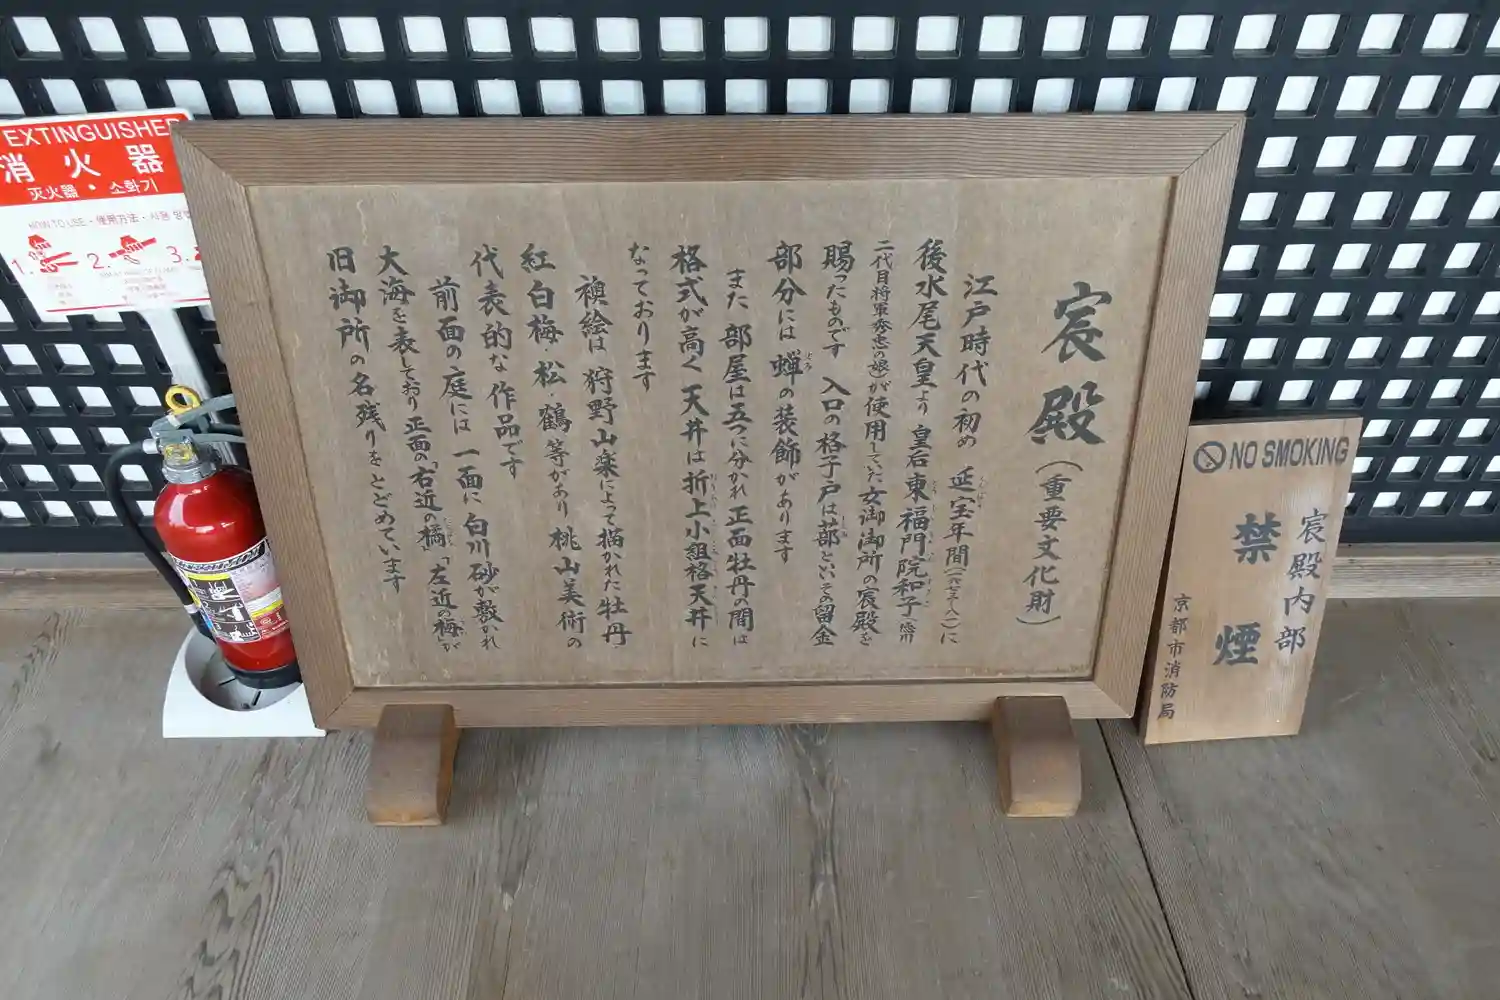 EXTINGUISHER
消火器
灭火器・소화기
HOW TO USE・使用方法・사용 방법
1. 2. 3.
宸殿(重要文化財)
江戸時代の初め 延宝年間(一六七三~八一)に
後水尾天皇より 皇后東福門院和子(徳川
二代目将軍秀忠の娘)が使用していた女御御所の宸殿を
賜ったものです 入口の格子戸は蔀といいその留金
部分には 蝉の装飾があります
また 部屋は五つに分かれ 正面牡丹の間は
格式が高く 天井は折上小組格天井に
なっております
襖絵は 狩野山楽によって描かれた 牡丹
紅白梅 松・鶴等があり 桃山美術の
代表的な作品です
前面の庭には 一面に 白川砂が敷かれ
大海を表しており正面の「右近の橘」「左近の梅」が
旧御所の名残りをとどめています
NO SMOKING
宸殿内部
禁煙
京都市消防局